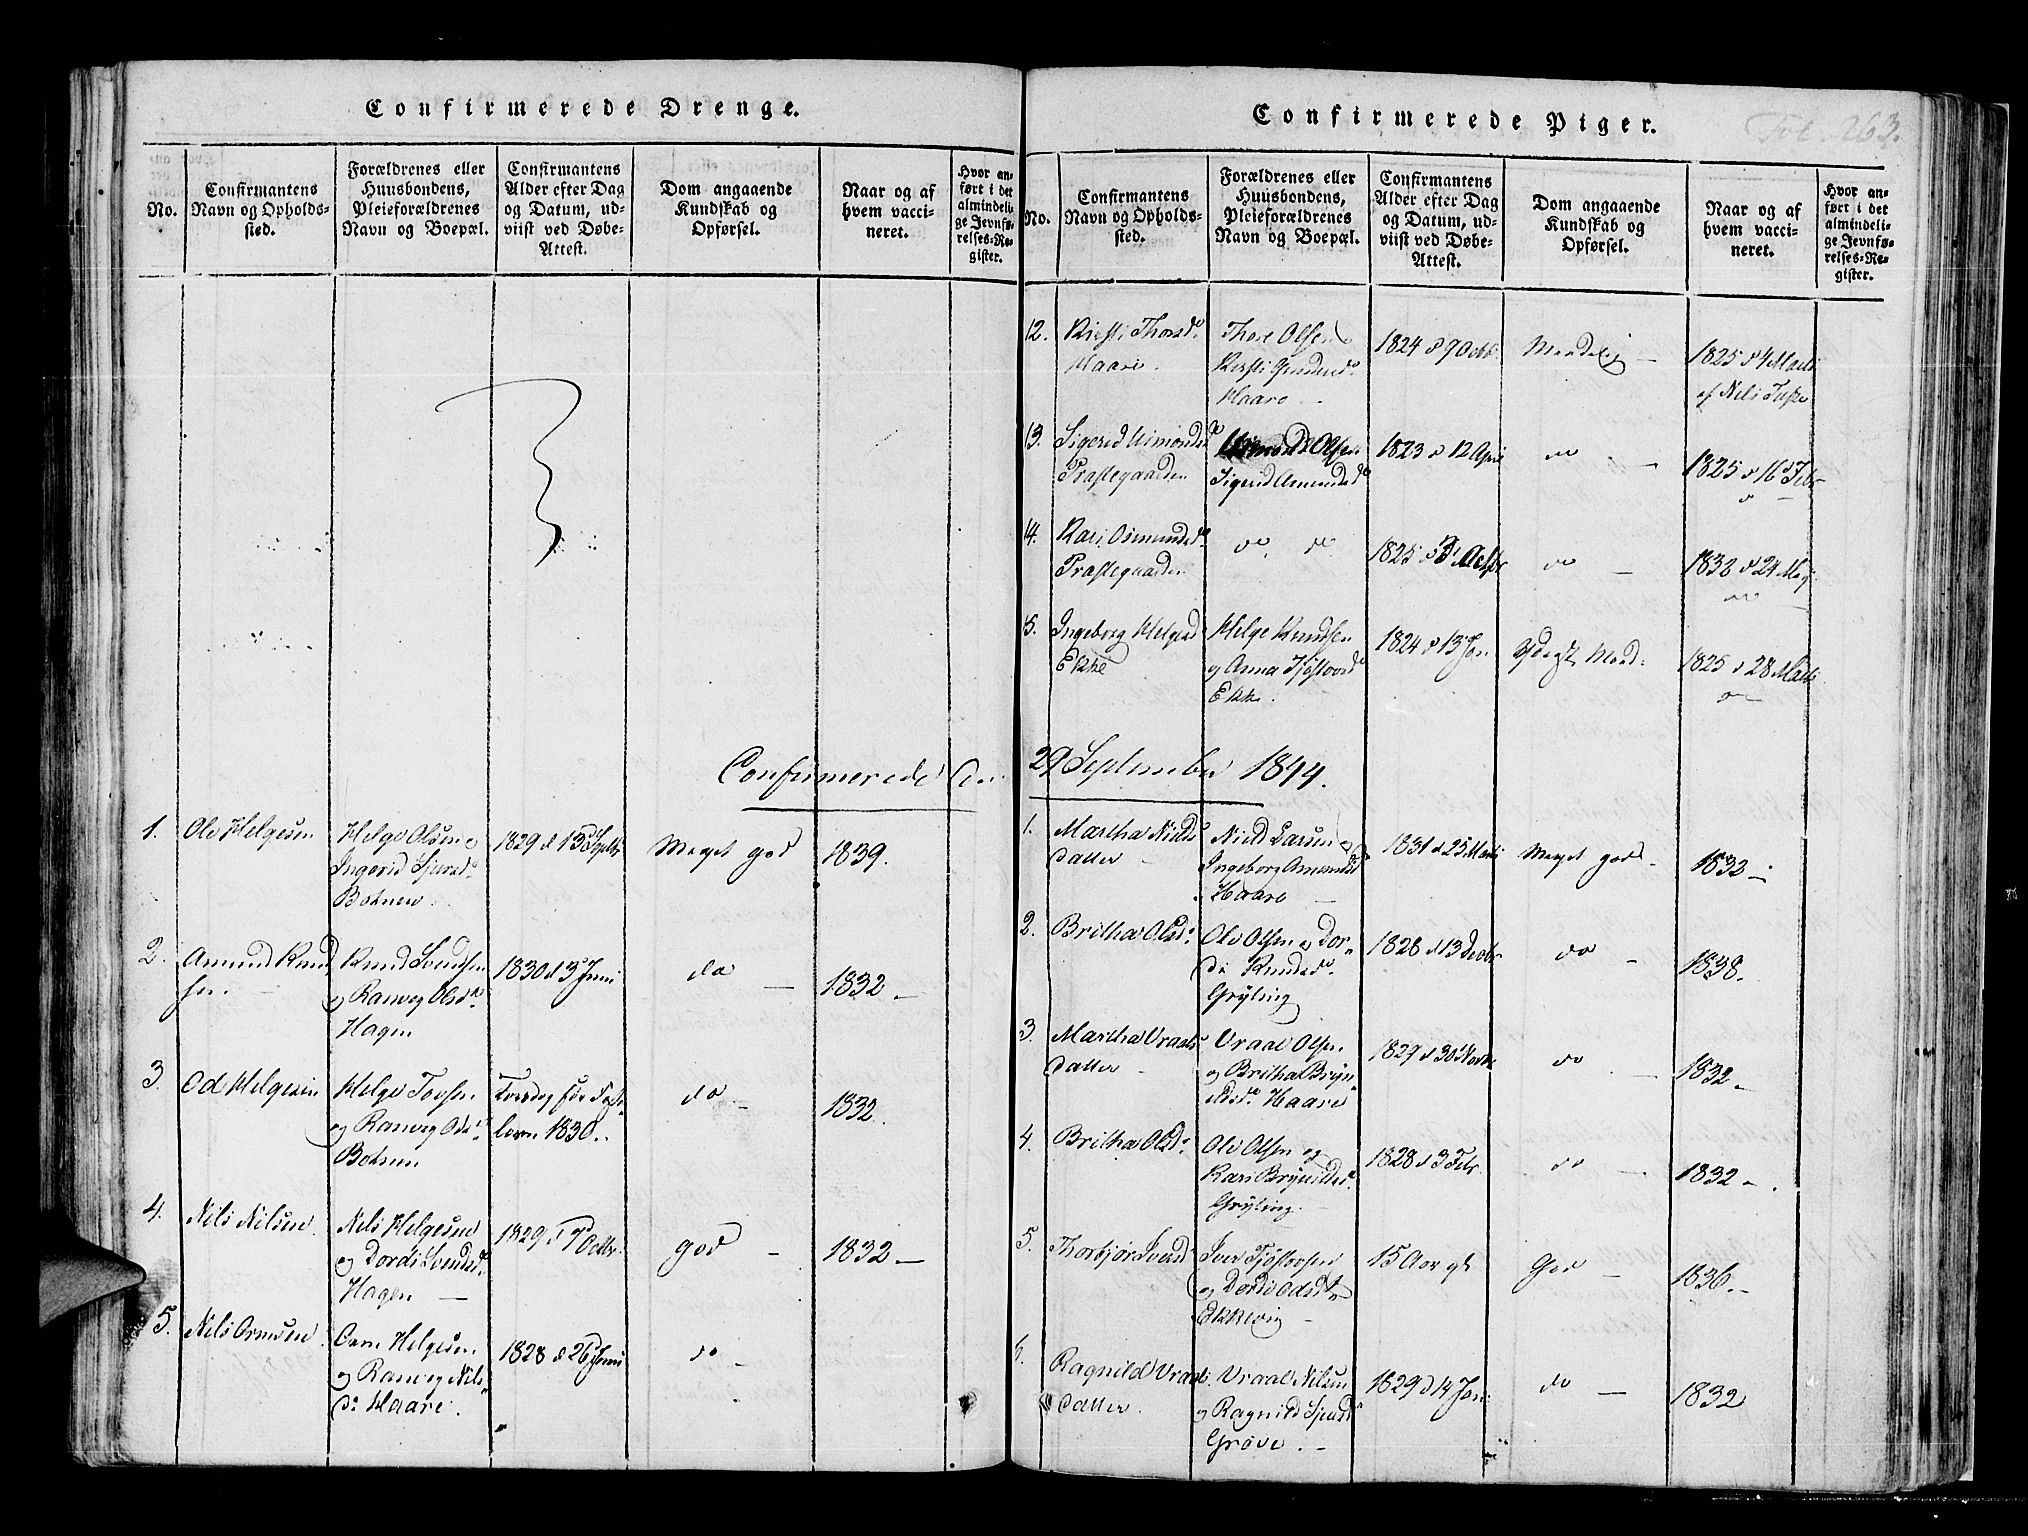 Confirmerede Drenge.
No.
Confirmantens
Navn og Opholds-
sted.
Forældrenes eller
Huusbondens,
Pleieforældrenes
Navn og Boepæl.
Confirmantens
Alder efter Dag
og Datum, ud-
viist ved Døbe-
Attest.
Dom angaaende
Kundskab og
Opførsel.
Naar og af
hvem vacci-
neret.
Hvor an-
ført i det
almindeli-
ge Jevnfø-
relses-Re-
gister.
Confirmerede
1.
Ole Helgesen
Helge Olsen
Botnen
1829 d 13 Septbr
Meget god
1839.
2.
Amund Knud
sen.
Knud Svendsen
og Ranveg Olsdr
Hagen
1830 d 3 Juni
do
1832 —
3.
Od Helgesen
Helge Tovsen
og Ranveg Ods
Botnen
1830.
do
1832.
4.
Nils Nilsen
Nils Helgesen
og Dordi Svends
Hagen —
1829 d 7 Octbr.
god —
1832 —
5.
Nils Ormsen
Orm Helgesen
og Ranveg Nils
dr Haare.
1828 d 26 Juni
do
Confirmerede Piger.
Fol 263.
No.
Confirmantens
Navn og Opholds-
sted.
Forældrenes eller
Huusbondens,
Pleieforældrenes
Navn og Boepæl.
Confirmantens
Alder efter Dag
og Datum, ud-
viist ved Døbe-
Attest.
Dom angaaende
Kundskab og
Opførsel.
Naar og af
hvem vacci-
neret.
Hvor an-
ført i det
almindeli-
ge Jevnfø-
relses-Re-
gister.
12.
Kirsti Thorsdr
Haare.
Thore Olsen
Haare —
1824 d 9 Octb.
Maadelig —
1825 d 4 Marti
af Nils
13.
Sigerid
Præstegaarden
Olsen
Sigerid Asmundsdr
1823 d 12 April
do —
1825 d 16 Febr
14.
Kari Osmundsdr
Præstegaarden
do do
1825 d 3 Octbr
do —
1832 d 24 Maj
15.
Ingeborg Helgesd
Ekke
Helge Knudsen
og Anna
Ekke.
1824 d 13 Jan
1825 d 28 Marti
29 September 1844.
1.
Martha Niels
datter —
Niels Larsen
Ingeborg Amunds
Haare —
1831 d 25 Marti
Meget god
1832 —
2.
Britha Olsdr
Ole Olsen og Dor-
di Knudsdr
Gryting
1828 d 13 Decbr
do —
1838.
3.
Martha Vraals
datter —
Vraal Olsen
og Britha Bryn
ildsdr Haare
1829 d 30
do
1832 —
4.
Britha Olsdr
Ole Olsen og
Kari Brynildsdr
Gryting.
1828 d 3 Febr.
do
1832 —
5.
Thorbjør Iversd
Iver Tjøstovsen
og Dordi Odsdtr
Ekkevig —
15 Aar gl
God —
1836 —
6.
Ragnild Vraals
datter.
Vraal Nilsen
og Ragnild Sjursd
Grøve. —
1829 d 14 Jan:
do —
1832